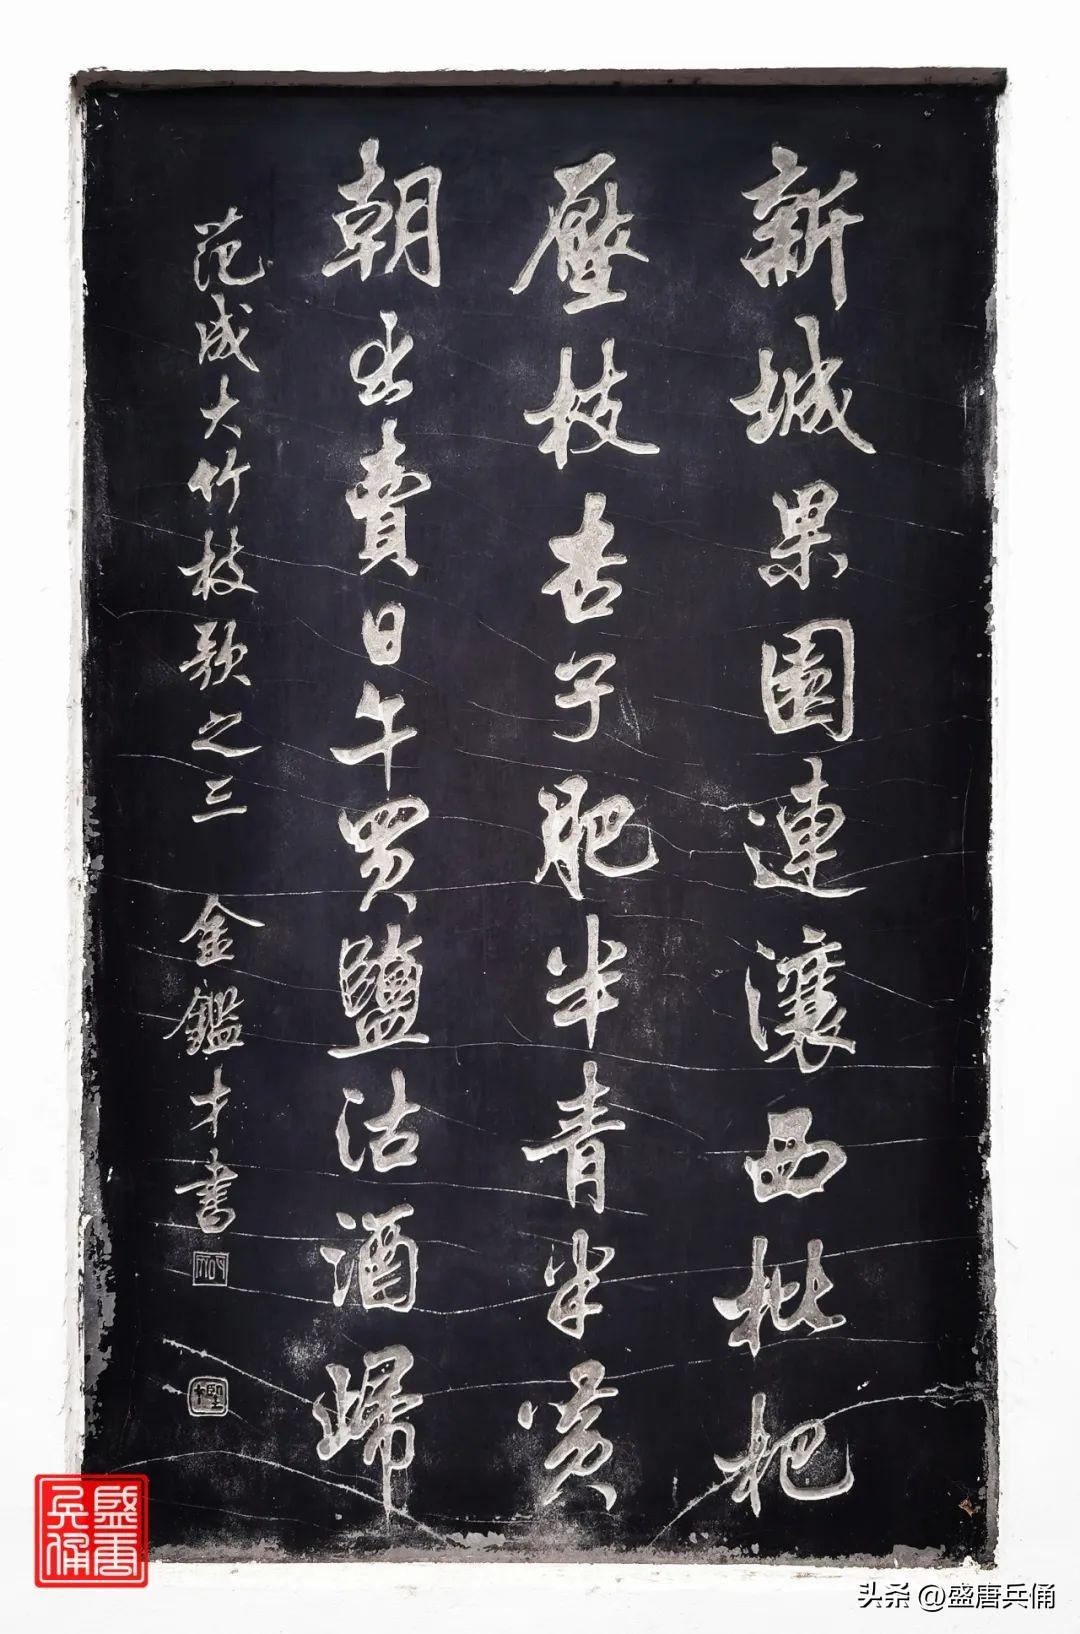 新城果園連瀼西枇杷
壓枝杏子肥半青半黃
朝出賣日午買鹽沽酒歸
范成大竹枝歌之三 金鑑才書
盛唐兵俑
头条 @盛唐兵俑